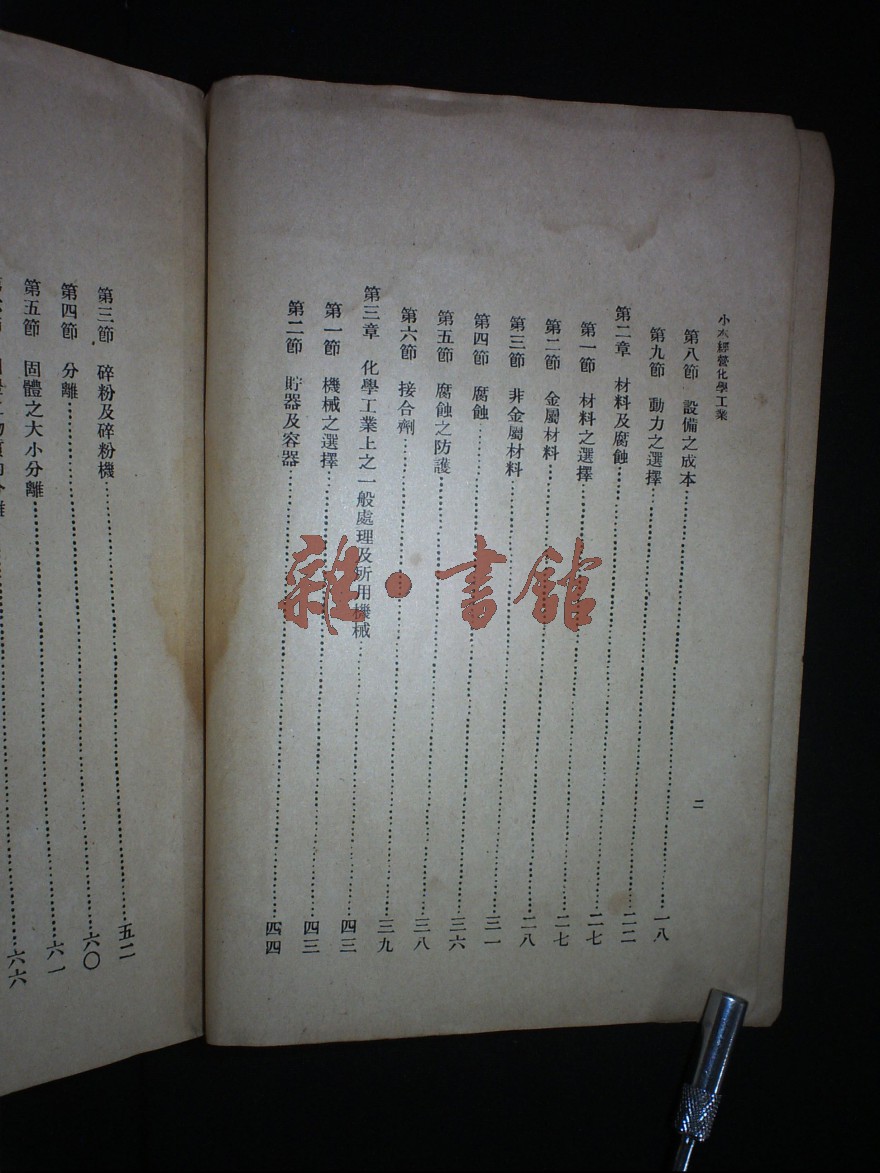 小本經營化學工業
二
第八節 設備之成本 一八
第九節 動力之選擇 二二
第二章 材料及腐蝕 二七
第一節 材料之選擇 二七
第二節 金屬材料 二八
第三節 非金屬材料 三一
第四節 腐蝕 三六
第五節 腐蝕之防護 三八
第六節 接合劑 三九
第三章 化學工業上之一般處理及所用機械 四三
第一節 機械之選擇 四三
第二節 貯器及容器 四四
第三節 碎粉及碎粉機 五二
第四節 分離 六〇
第五節 固體之大小分離 六一
六六
雜·書館